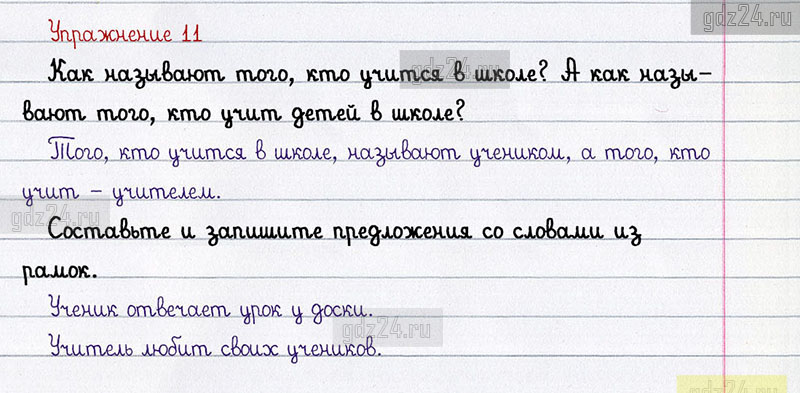 gdz24.ru
Упражнение 11
Как называют того, кто учится в школе? А как назы-
gdz24.ru
вают того, кто учит детей в школе?
Того, кто учится в школе, называют учеником, а того, кто
учит – учителем.
gdz24.ru
Составьте и запишите предложения со словами из
рамок.
Ученик отвечает урок у доски.
gdz24.ru
Учитель любит своих учеников.
gdz24.ru